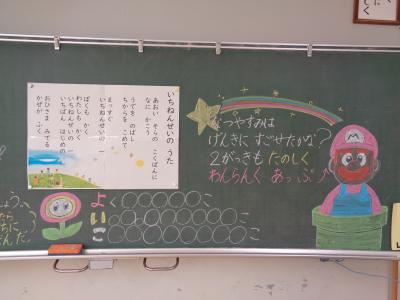 いちねんせいの うた
あおい そらの こくばんに
なに かこう
うでを のばし
ちからを こめて
まっすぐ
いちねんせいの 一
ぼくも かく
わたしも かく
いちねんせいの 一
いちばん はじめの 一
おひさま みてる
かぜが ふく
なつやすみは
げんきに すごせたかな?
2がっきも たのしく
わんらんく あっぷ♪
よく○○○○○○こ
い○○○○○○○○こ
こ○○○○○○○○こ
M